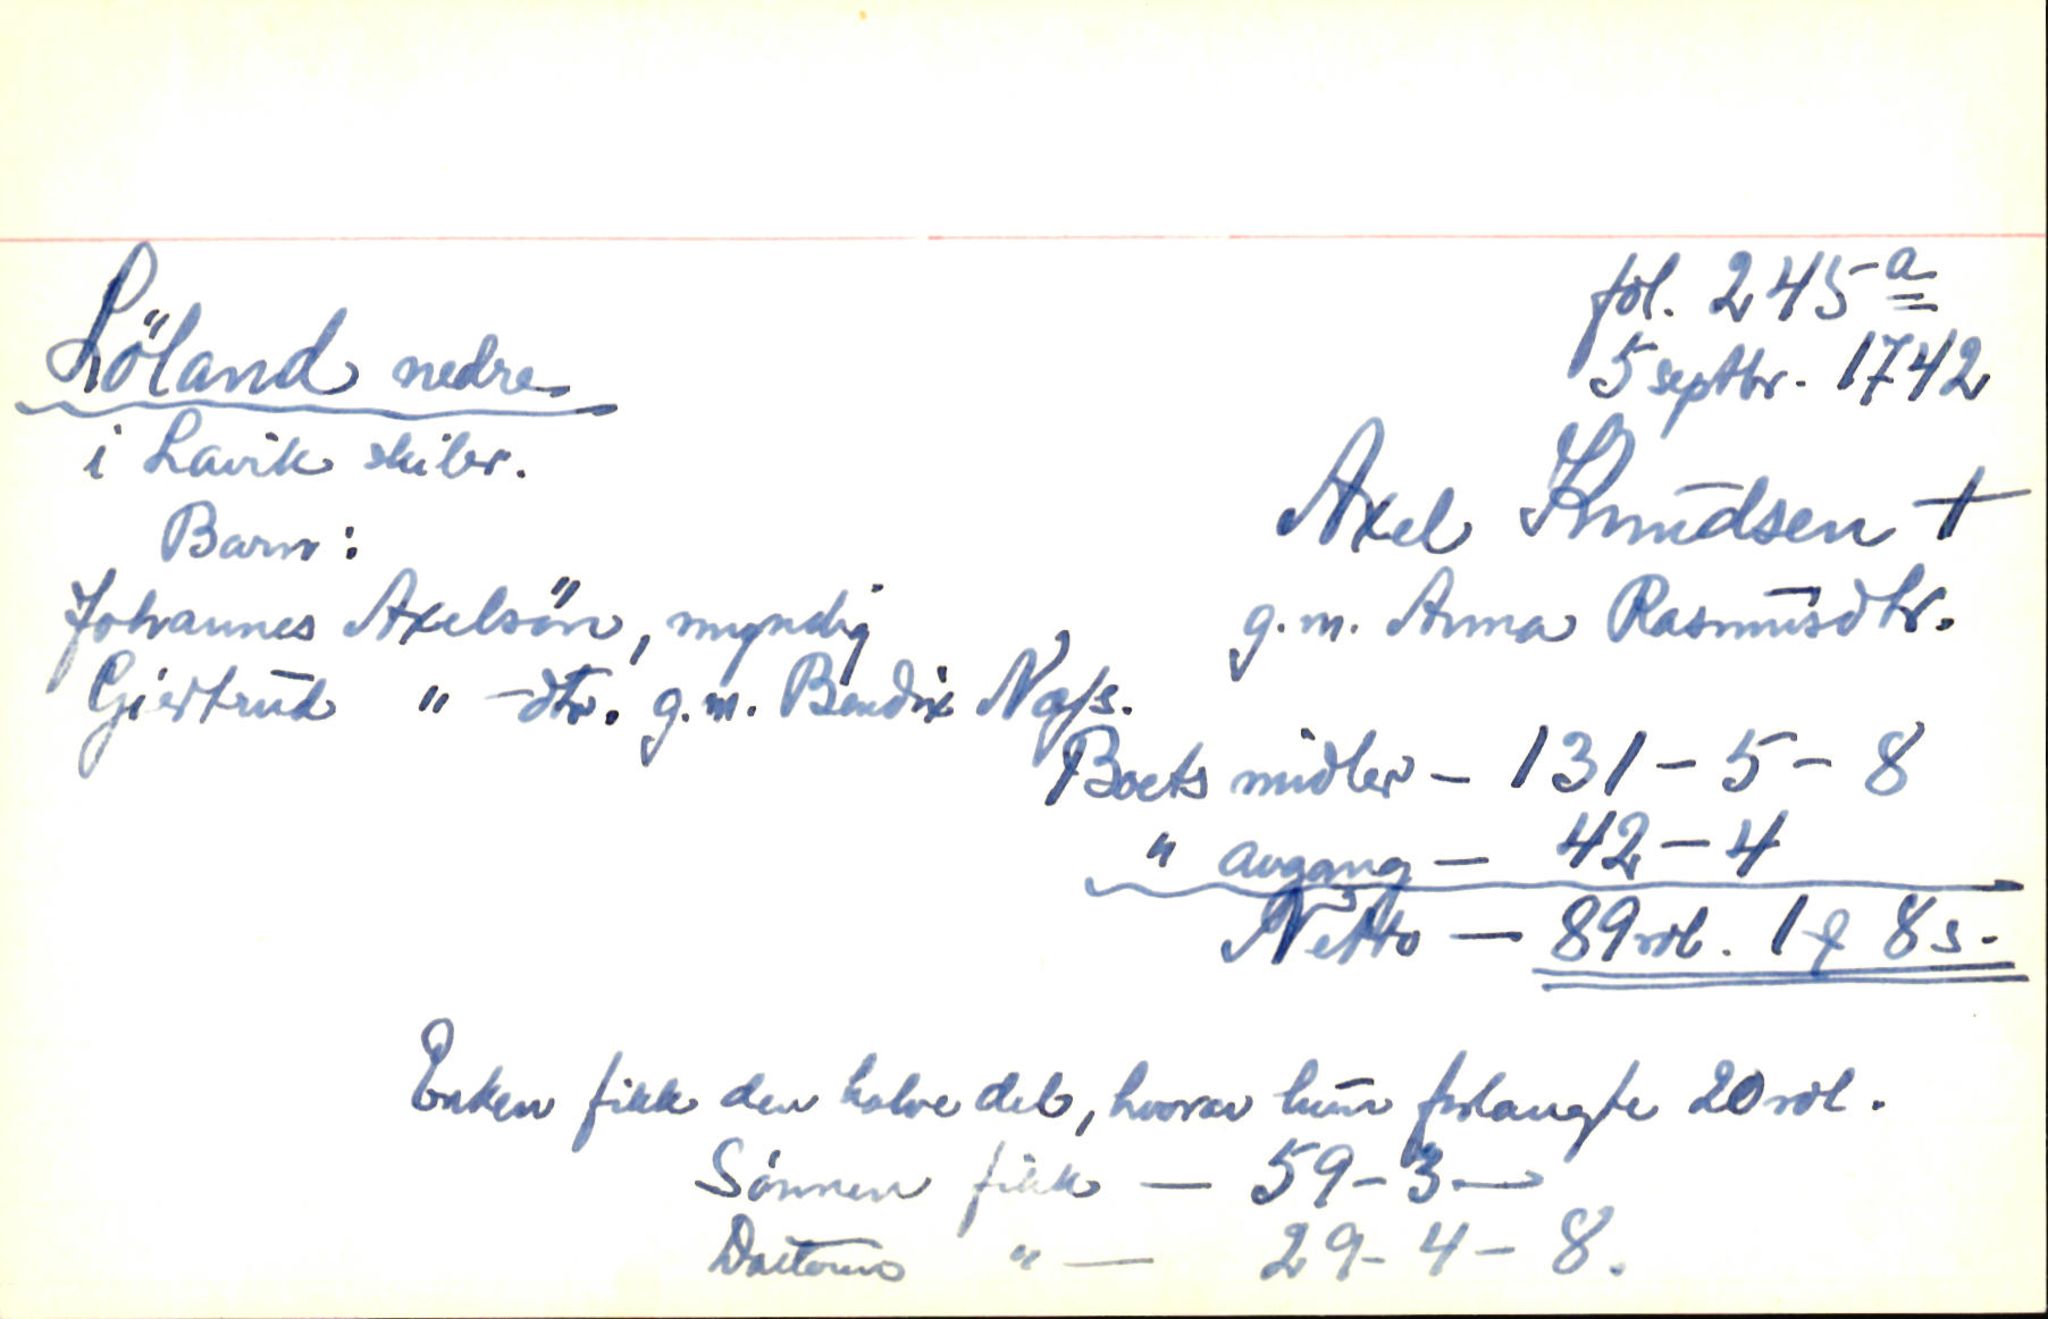 föl. 245 a
Löland nedre
5 septbr. 1742
i Lavik skibr.
Axel Knudsen †
Barn:
g.m. Anna Rasmusdtr.
Johannes Axelsön, myndig
Giertrud " -dtr. g.m. Bendix Næss.
Boets midler - 131 - 5 - 8
" avgang - 42 - 4
Netto - 89 rdl. 1 ƒ 8 s.
Enken fikk den halve del, hvorav hun forlangte 20 rdl.
Sönnen fikk - 59 - 3 -
Datteren " - 29 - 4 - 8.